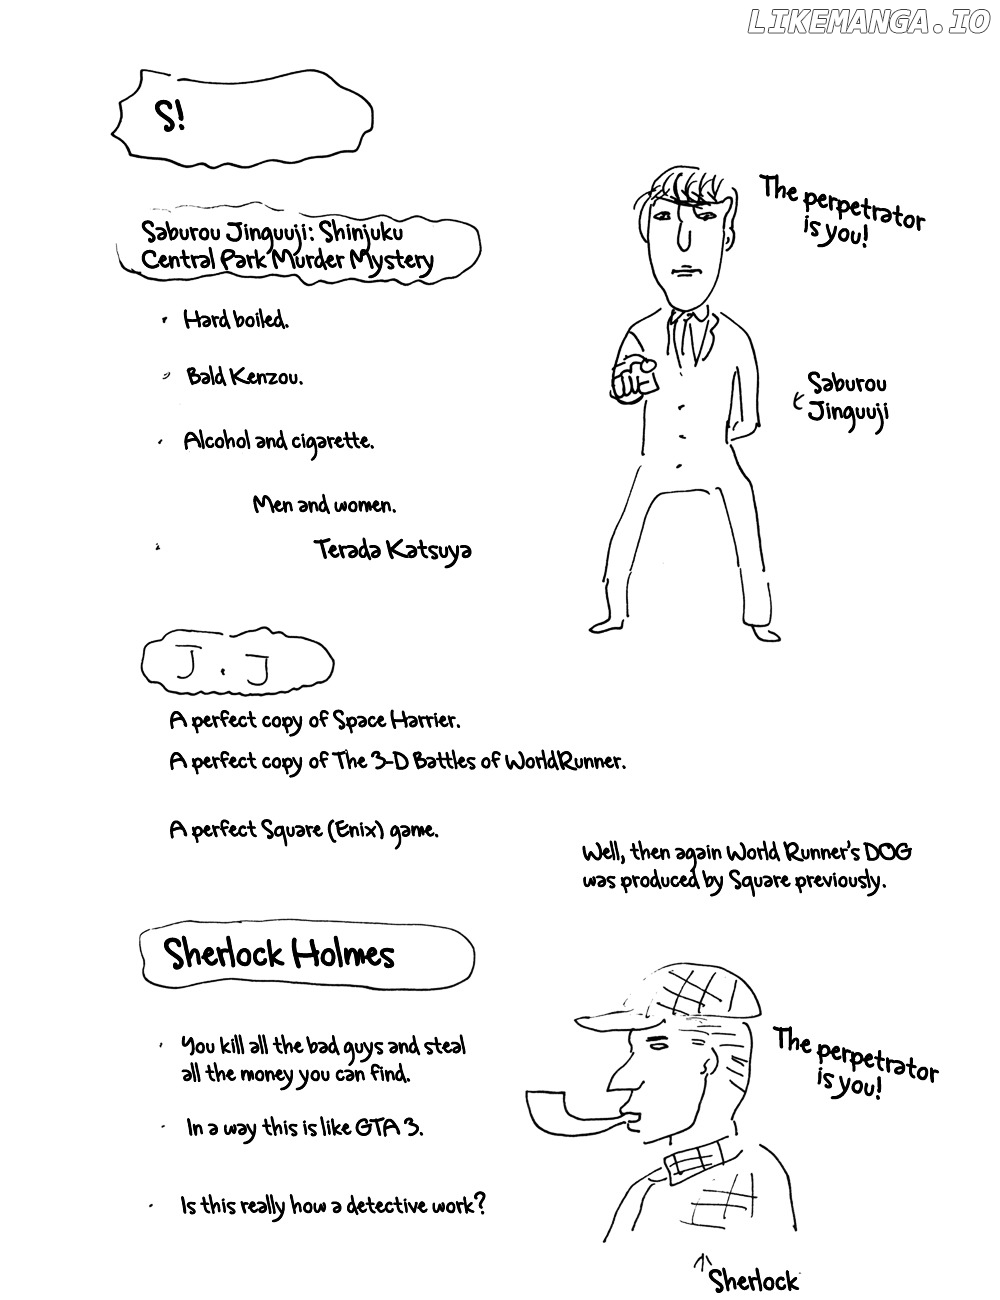 LIKEMANGA.IO
S!
The perpetrator
is you!
Saburou Jinguuji: Shinjuku
Central Park Murder Mystery
Hard boiled.
Bald Kenzou.
Saburou
Jinguuji
Alcohol and cigarette.
Men and women.
Terada Katsuya
J.J
A perfect copy of Space Harrier.
A perfect copy of The 3-D Battles of WorldRunner.
A perfect Square (Enix) game.
Well, then again World Runner's DOG
was produced by Square previously.
Sherlock Holmes
You kill all the bad guys and steal
all the money you can find.
The perpetrator
is you!
In a way this is like GTA 3.
Is this really how a detective work?
Sherlock